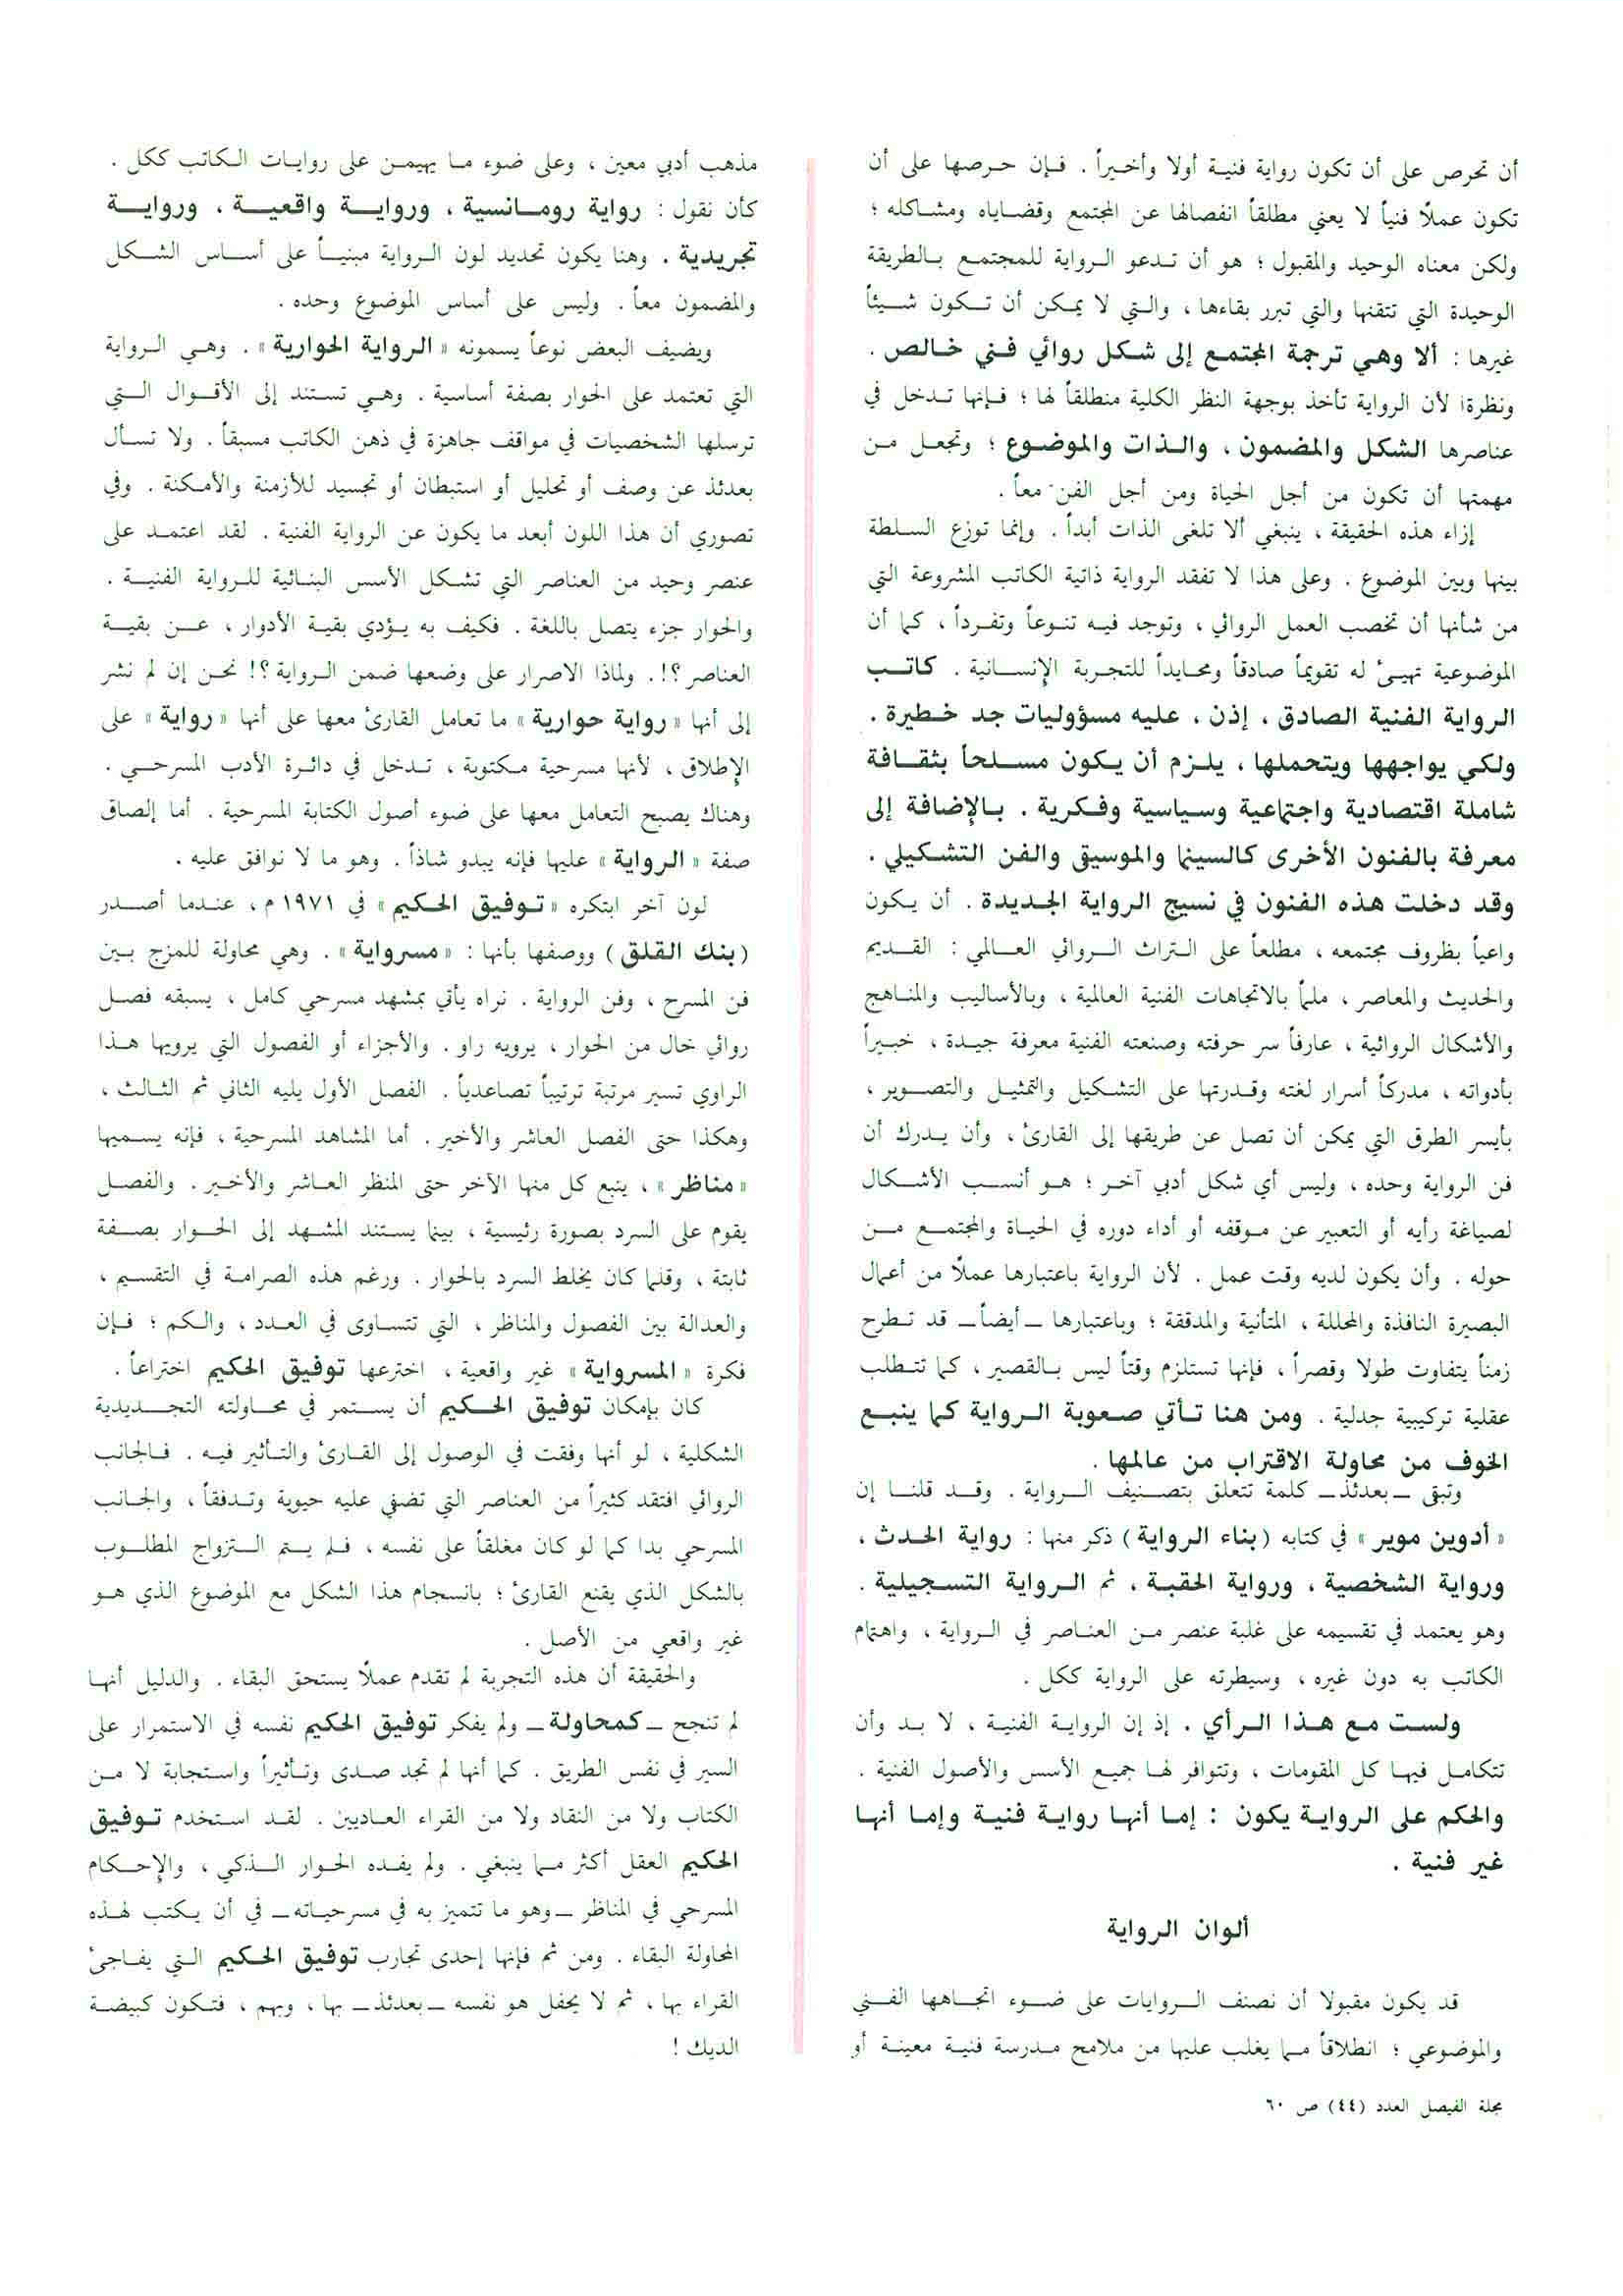 أن تحرص على أن تكون رواية فنية أولا وأخيراً . فإن حرصها على أن
تكون عملًا فنياً لا يعني مطلقاً انفصالها عن المجتمع وقضاياه ومشاكله ؛
ولكن معناه الوحيد والمقبول ؛ هو أن تدعو الرواية للمجتمع بالطريقة
الوحيدة التي تتقنها والتي تبرر بقاءها ، والتي لا يمكن أن تكون شيئاً
غيرها : ألا وهي ترجمة المجتمع إلى شكل روائي فني خالص .
ونظرةا لأن الرواية تأخذ بوجهة النظر الكلية منطلقاً لها ؛ فإنها تدخل في
عناصرها الشكل والمضمون ، والذات والموضوع ؛ وتجعل من
مهمتها أن تكون من أجل الحياة ومن أجل الفن معاً .
إزاء هذه الحقيقة ، ينبغي ألا تلغى الذات أبداً . وإنما توزع السلطة
بينها وبين الموضوع . وعلى هذا لا تفقد الرواية ذاتية الكاتب المشروعة التي
من شأنها أن تخصب العمل الروائي ، وتوجد فيه تنوعاً وتفرداً ، كما أن
الموضوعية تهيئ له تقويماً صادقاً ومحايداً للتجربة الإنسانية . كاتب
الرواية الفنية الصادق ، إذن ، عليه مسؤوليات جد خطيرة .
ولكي يواجهها ويتحملها ، يلزم أن يكون مسلحاً بثقافة
شاملة اقتصادية واجتماعية وسياسية وفكرية . بالإضافة إلى
معرفة بالفنون الأخرى كالسينما والموسيقى والفن التشكيلي .
وقد دخلت هذه الفنون في نسيج الرواية الجديدة . أن يكون
واعياً بظروف مجتمعه ، مطلعاً على التراث الروائي العالمي : القديم
والحديث والمعاصر ، ملماً بالاتجاهات الفنية العالمية ، وبالأساليب والمناهج
والأشكال الروائية ، عارفاً سر حرفته وصنعته الفنية معرفة جيدة ، خبيراً
بأدواته ، مدركاً أسرار لغته وقدرتها على التشكيل والتمثيل والتصوير ،
بأيسر الطرق التي يمكن أن تصل عن طريقها إلى القارئ ، وأن يدرك أن
فن الرواية وحده ، وليس أي شكل أدبي آخر ؛ هو أنسب الأشكال
لصياغة رأيه أو التعبير عن موقفه أو أداء دوره في الحياة والمجتمع من
حوله . وأن يكون لديه وقت عمل . لأن الرواية باعتبارها عملًا من أعمال
البصيرة النافذة والمحللة ، المتأنية والمدققة ؛ وباعتبارها ــ أيضاً ــ قد تطرح
زمناً يتفاوت طولا وقصراً ، فإنها تستلزم وقتاً ليس بالقصير ، كما تتطلب
عقلية تركيبية جدلية . ومن هنا تأتي صعوبة الرواية كما ينبع
الخوف من محاولة الاقتراب من عالمها .
وتبقى ــ بعدئذ ــ كلمة تتعلق بتصنيف الرواية . وقد قلنا إن
« أدوين موير » في كتابه (بناء الرواية) ذكر منها : رواية الحدث ،
ورواية الشخصية ، ورواية الحقبة ، ثم الرواية التسجيلية .
وهو يعتمد في تقسيمه على غلبة عنصر من العناصر في الرواية ، واهتمام
الكاتب به دون غيره ، وسيطرته على الرواية ككل .
ولست مع هذا الرأي . إذ إن الرواية الفنية ، لا بد وأن
تتكامل فيها كل المقومات ، وتتوافر لها جميع الأسس والأصول الفنية .
والحكم على الرواية يكون : إما أنها رواية فنية وإما أنها
غير فنية .
ألوان الرواية
قد يكون مقبولا أن نصنف الروايات على ضوء اتجاهها الفني
والموضوعي ؛ انطلاقاً مما يغلب عليها من ملامح مدرسة فنية معينة أو
مذهب أدبي معين ، وعلى ضوء ما يهيمن على روايات الكاتب ككل .
كأن نقول : رواية رومانسية ، ورواية واقعية ، ورواية
تجريدية . وهنا يكون تحديد لون الرواية مبنياً على أساس الشكل
والمضمون معاً . وليس على أساس الموضوع وحده .
ويضيف البعض نوعاً يسمونه « الرواية الحوارية » . وهي الرواية
التي تعتمد على الحوار بصفة أساسية . وهي تستند إلى الأقوال التي
ترسلها الشخصيات في مواقف جاهزة في ذهن الكاتب مسبقاً . ولا تسأل
بعدئذ عن وصف أو تحليل أو استبطان أو تجسيد للأزمنة والأمكنة . وفي
تصوري أن هذا اللون أبعد ما يكون عن الرواية الفنية . لقد اعتمد على
عنصر وحيد من العناصر التي تشكل الأسس البنائية للرواية الفنية .
والحوار جزء يتصل باللغة . فكيف به يؤدي بقية الأدوار ، عن بقية
العناصر ؟!. ولماذا الاصرار على وضعها ضمن الرواية ؟! نحن إن لم نشر
إلى أنها « رواية حوارية » ما تعامل القارئ معها على أنها « رواية » على
الإطلاق ، لأنها مسرحية مكتوبة ، تدخل في دائرة الأدب المسرحي .
وهناك يصبح التعامل معها على ضوء أصول الكتابة المسرحية . أما إلصاق
صفة « الرواية » عليها فإنه يبدو شاذاً . وهو ما لا نوافق عليه .
لون آخر ابتكره « توفيق الحكيم » في ١٩٧١ م ، عندما أصدر
(بنك القلق) ووصفها بأنها : « مسرواية » . وهي محاولة للمزج بين
فن المسرح ، وفن الرواية . نراه يأتي بمشهد مسرحي كامل ، يسبقه فصل
روائي خال من الحوار ، يرويه راو . والأجزاء أو الفصول التي يرويها هذا
الراوي تسير مرتبة ترتيباً تصاعدياً . الفصل الأول يليه الثاني ثم الثالث ،
وهكذا حتى الفصل العاشر والأخير . أما المشاهد المسرحية ، فإنه يسميها
« مناظر » ، ينبع كل منها الآخر حتى المنظر العاشر والأخير . والفصل
يقوم على السرد بصورة رئيسية ، بينما يستند المشهد إلى الحوار بصفة
ثابتة ، وقلما كان يخلط السرد بالحوار . ورغم هذه الصرامة في التقسيم ،
والعدالة بين الفصول والمناظر ، التي تتساوى في العدد ، والكم ؛ فإن
فكرة « المسرواية » غير واقعية ، اخترعها توفيق الحكيم اختراعاً .
كان بإمكان توفيق الحكيم أن يستمر في محاولته التجديدية
الشكلية ، لو أنها وفقت في الوصول إلى القارئ والتأثير فيه . فالجانب
الروائي افتقد كثيراً من العناصر التي تضفي عليه حيوية وتدفقاً ، والجانب
المسرحي بدا كما لو كان مغلقاً على نفسه ، فلم يتم التزواج المطلوب
بالشكل الذي يقنع القارئ ؛ بانسجام هذا الشكل مع الموضوع الذي هو
غير واقعي من الأصل .
والحقيقة أن هذه التجربة لم تقدم عملًا يستحق البقاء . والدليل أنها
لم تنجح ــ كمحاولة ــ ولم يفكر توفيق الحكيم نفسه في الاستمرار على
السير في نفس الطريق . كما أنها لم تجد صدى وتأثيراً واستجابة لا من
الكتاب ولا من النقاد ولا من القراء العاديين . لقد استخدم توفيق
الحكيم العقل أكثر مما ينبغي . ولم يفده الحوار الذكي ، والإحكام
المسرحي في المناظر ــ وهو ما تتميز به في مسرحياته ــ في أن يكتب لهذه
المحاولة البقاء . ومن ثم فإنها إحدى تجارب توفيق الحكيم التي يفاجئ
القراء بها ، ثم لا يحفل هو نفسه ــ بعدئذ ــ بها ، وبهم ، فتكون كبيضة
الديك !
مجلة الفيصل العدد (٤٤) ص ٦٠